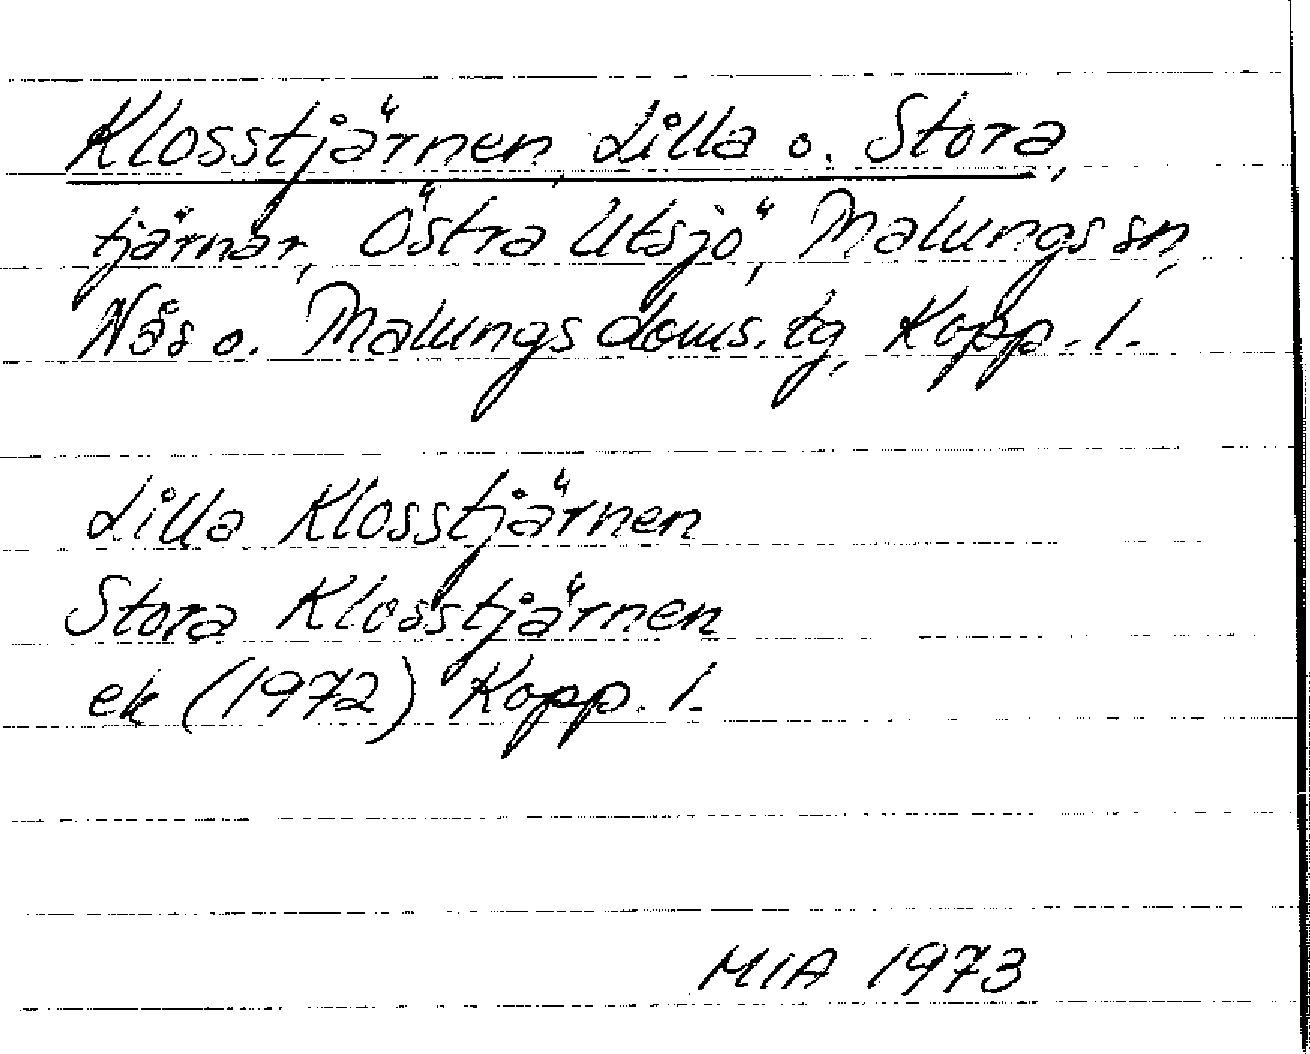 Klosstjärnen, Lilla o. Stora,
tjärnar, Östra Utsjö, Malungs sn,
Nås o. Malungs doms. tg, Kopp. l.
Lilla Klosstjärnen
Stora Klosstjärnen
ek (1972) Kopp. l.
MIA 1973